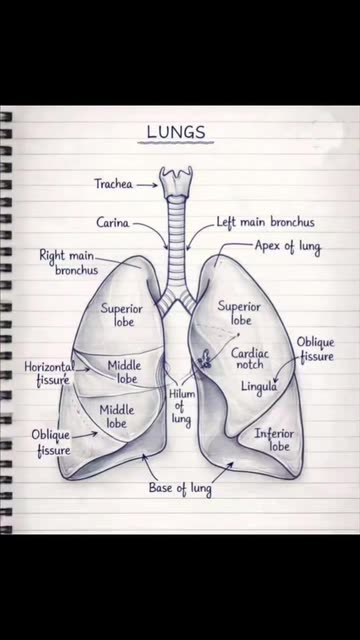 LUNGS
Trachea
Carina
Left main bronchus
Apex of lung
Right main
bronchus
Superior
lobe
Superior
lobe
Oblique
fissure
Cardiac
notch
Horizontal
fissure
Middle
lobe
Lingula
Hilum
of
lung
Middle
lobe
Oblique
fissure
Inferior
lobe
Base of lung